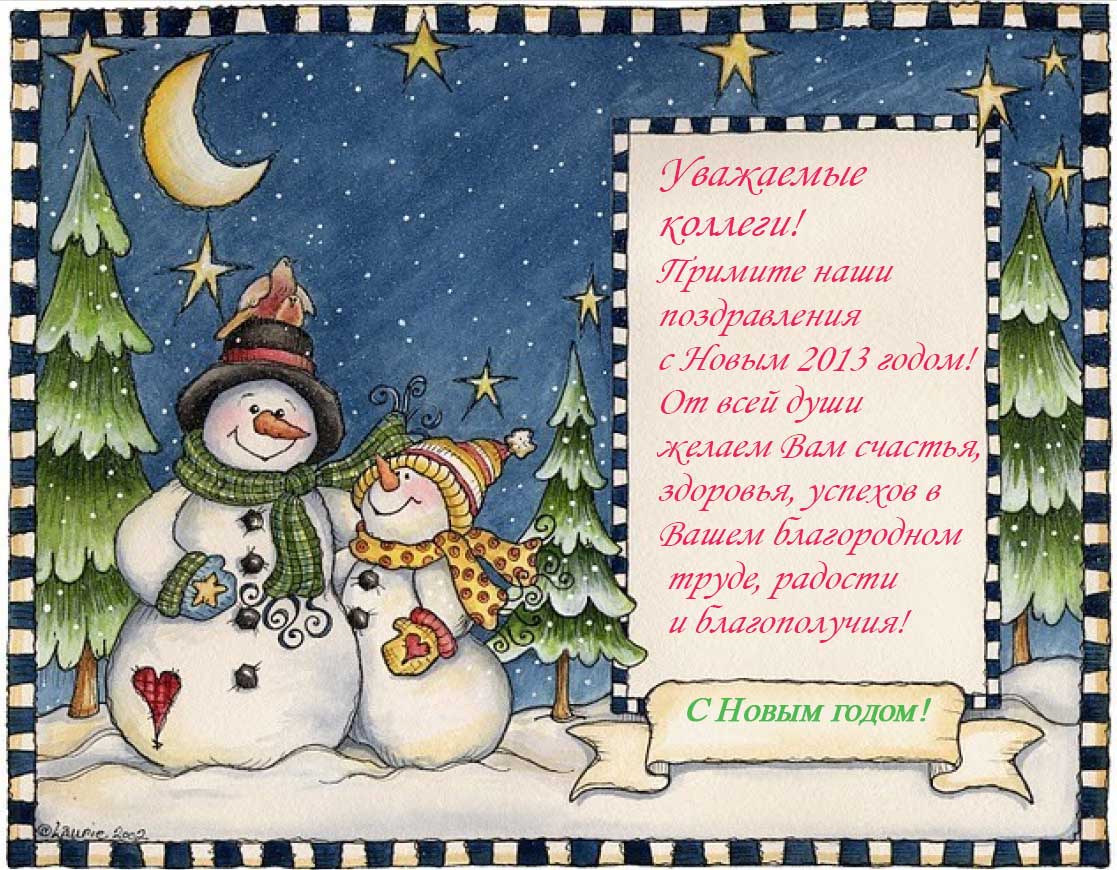 Уважаемые
коллеги!
Примите наши
поздравления
с Новым 2013 годом!
От всей души
желаем Вам счастья,
здоровья, успехов в
Вашем благородном
труде, радости
и благополучия!
С Новым годом!
©Laurie 2002